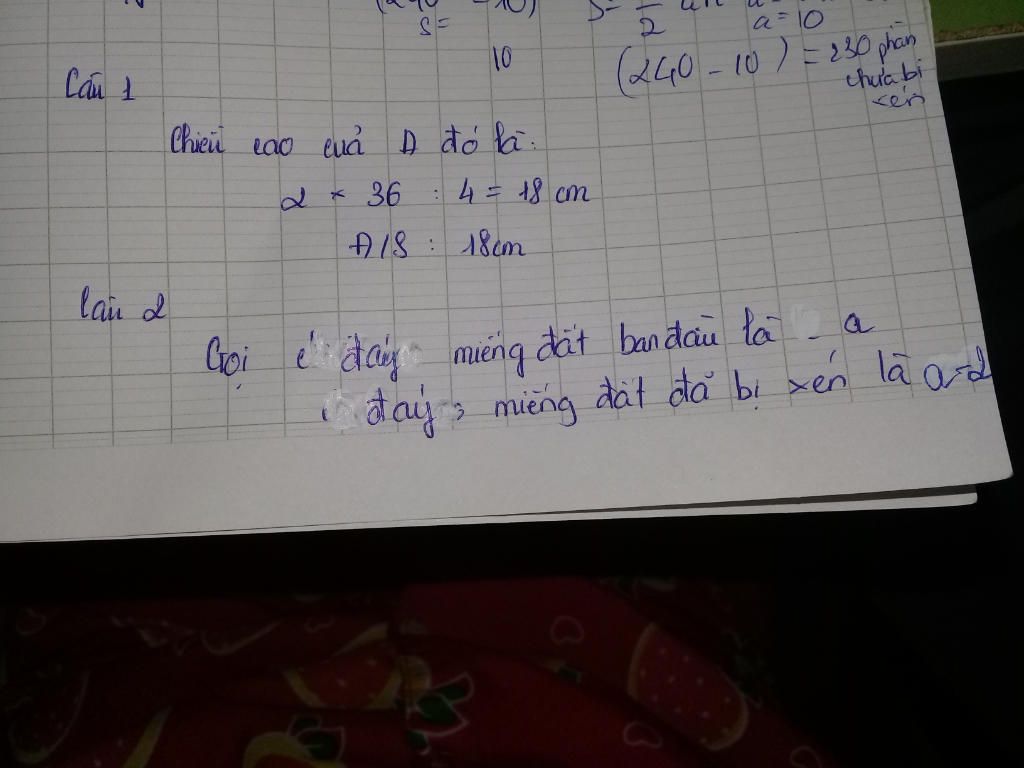 (240 - 10) S = 1/2 ah
S = a = 10
10 (240 - 10) = 230 phần
chưa bị
xén
Câu 1
Chiều cao của Δ đó là:
2 × 36 : 4 = 18 cm
Đ/S : 18cm
Câu 2
Gọi đáy miếng đất ban đầu là a
đáy miếng đất đã bị xén là a-2